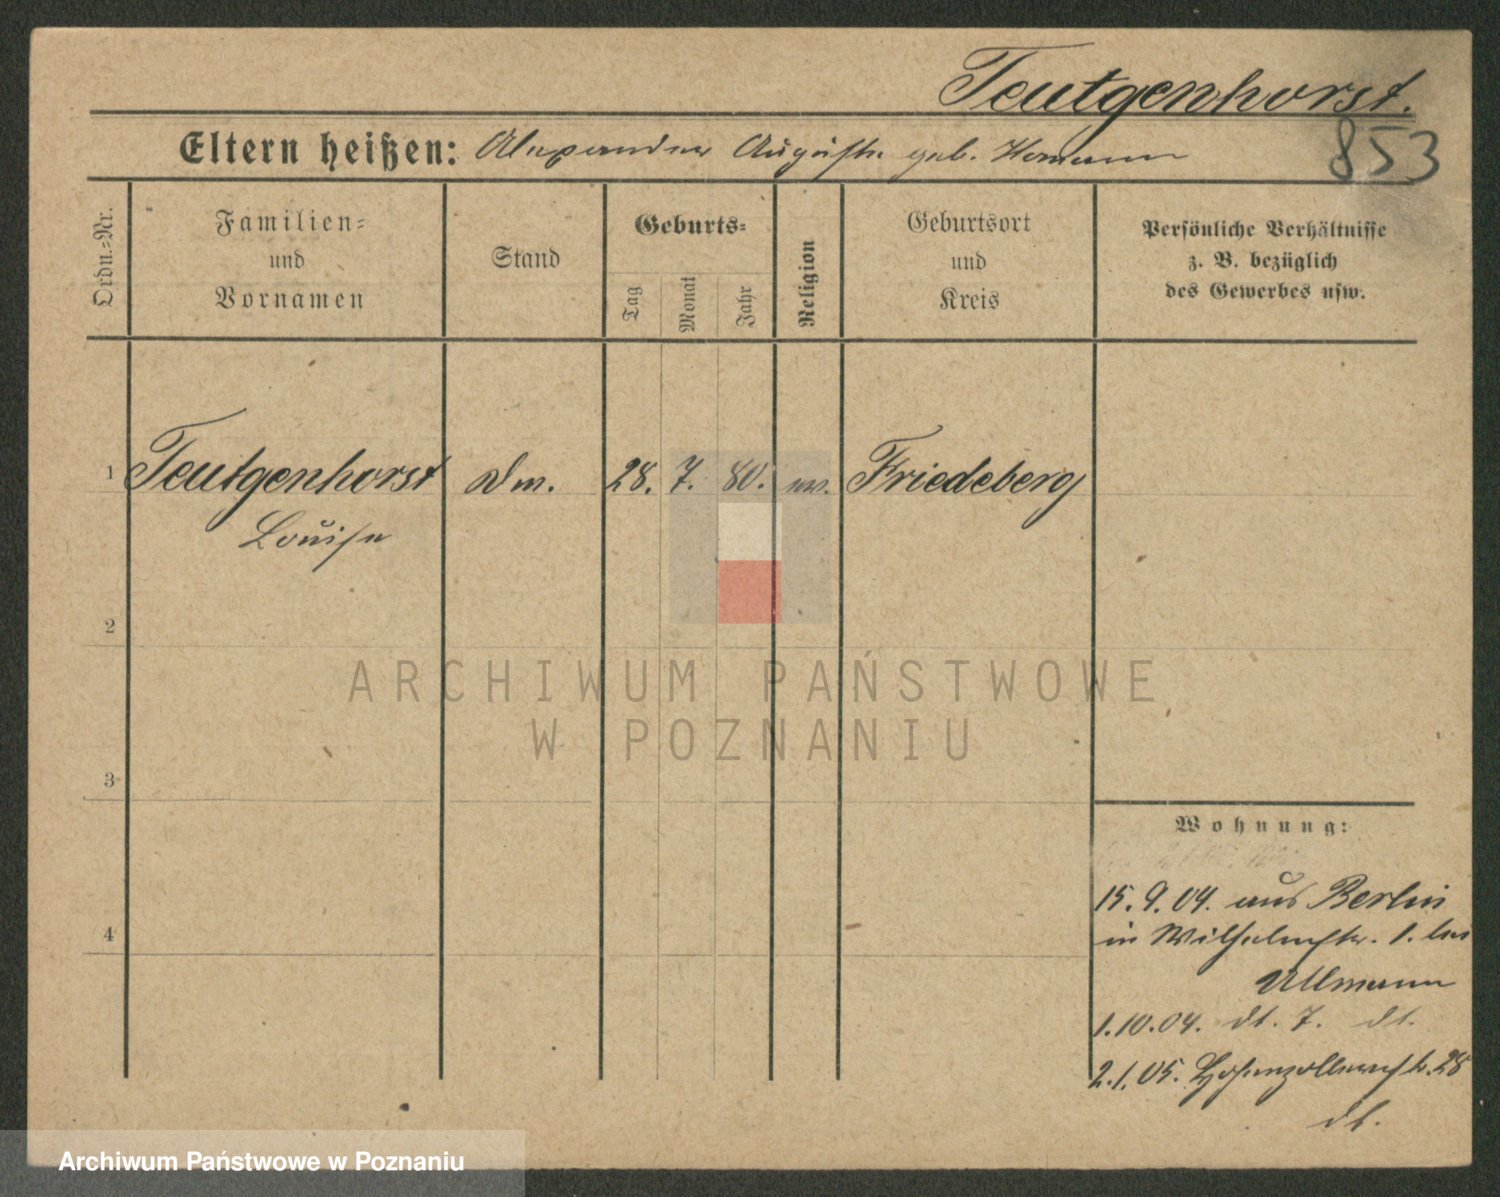 Teutgenhorst.
853
Eltern heißen: Alexander Auguste geb. Homann
Ordn.-Nr.
Familien-
und
Vornamen
Stand
Geburts-
Tag
Monat
Jahr
Religion
Geburtsort
und
Kreis
Persönliche Verhältnisse
z. B. bezüglich
des Gewerbes usw.
1 Teutgenhorst Dm. 28. 7. 80. ev. Friedeberg
Louise
2
ARCHIWUM PAŃSTWOWE
W POZNANIU
3
Wohnung:
15. 9. 04. aus Berlin
in Wilhelmstr. 1. bei
Ullmann
4
1. 10. 04. dt. 7. dt.
2. 1. 05. Hohenzollernstr. 28
dt.
Archiwum Państwowe w Poznaniu